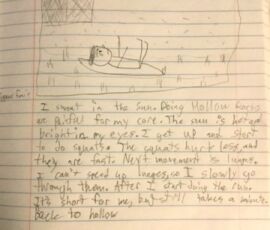 I sweat in the sun. Doing Hollow Rocks
are painful for my core. The sun is hot and
bright in my eyes. I get up and start
to do squats. The squats hurt less, and
they are fast. Next movement is lunges.
I can't speed up lunges, so I slowly go
through them. After I start doing the run.
It's short for me, but still takes a minute.
Back to hollow